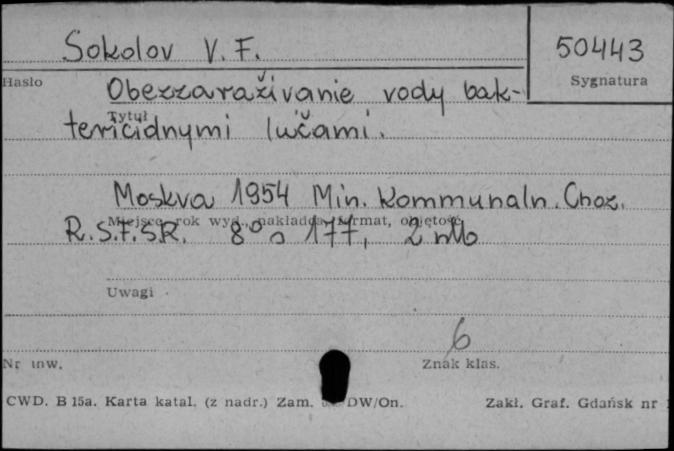 Sokolov V. F.
50443
Hasło
Sygnatura
Obezzaraživanie vody bak-
Tytuł
tericidnymi lučami.
Moskva 1954 Min. Kommunaln. Choz.
Miejsce, rok wyd., nakładca, format, objętość
R.S.F.S.R. 8° s 177, 2 nlb
Uwagi
6
Nr inw.
Znak klas.
CWD. B 15a. Karta katal. (z nadr.) Zam. DW/On.
Zakł. Graf. Gdańsk nr